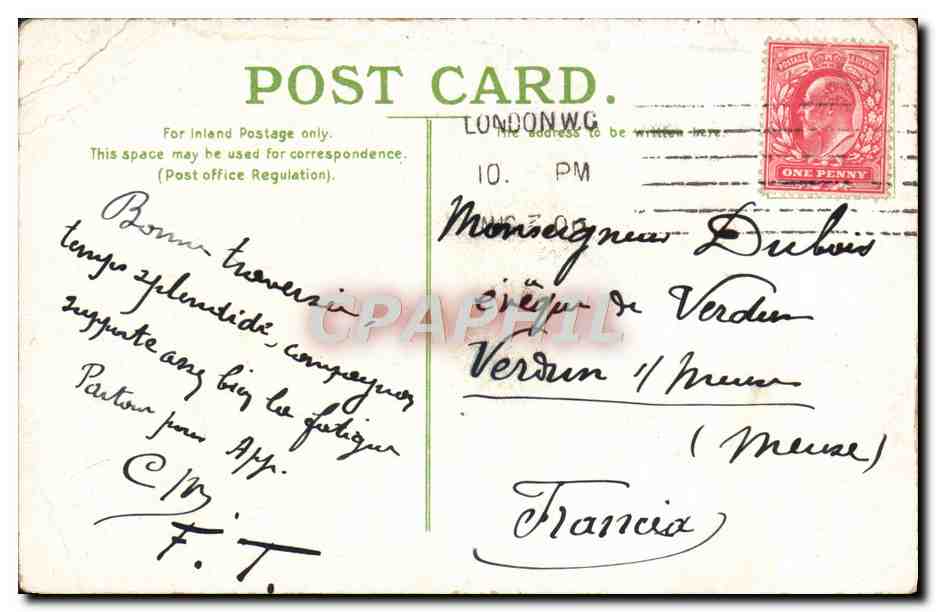 POST CARD.
For Inland Postage only.
This space may be used for correspondence.
(Post office Regulation).
The address to be written here.
LONDON W.C
10. PM
POSTAGE REVENUE
ONE PENNY
Bonne traversée,
temps splendide, compagnon
supporte assez bien la fatigue
Partons pour App.
C
F. T.
Monseigneur Dubois
évêque de Verdun
Verdun s/ Meuse
(Meuse)
Francia
CPAPHIL